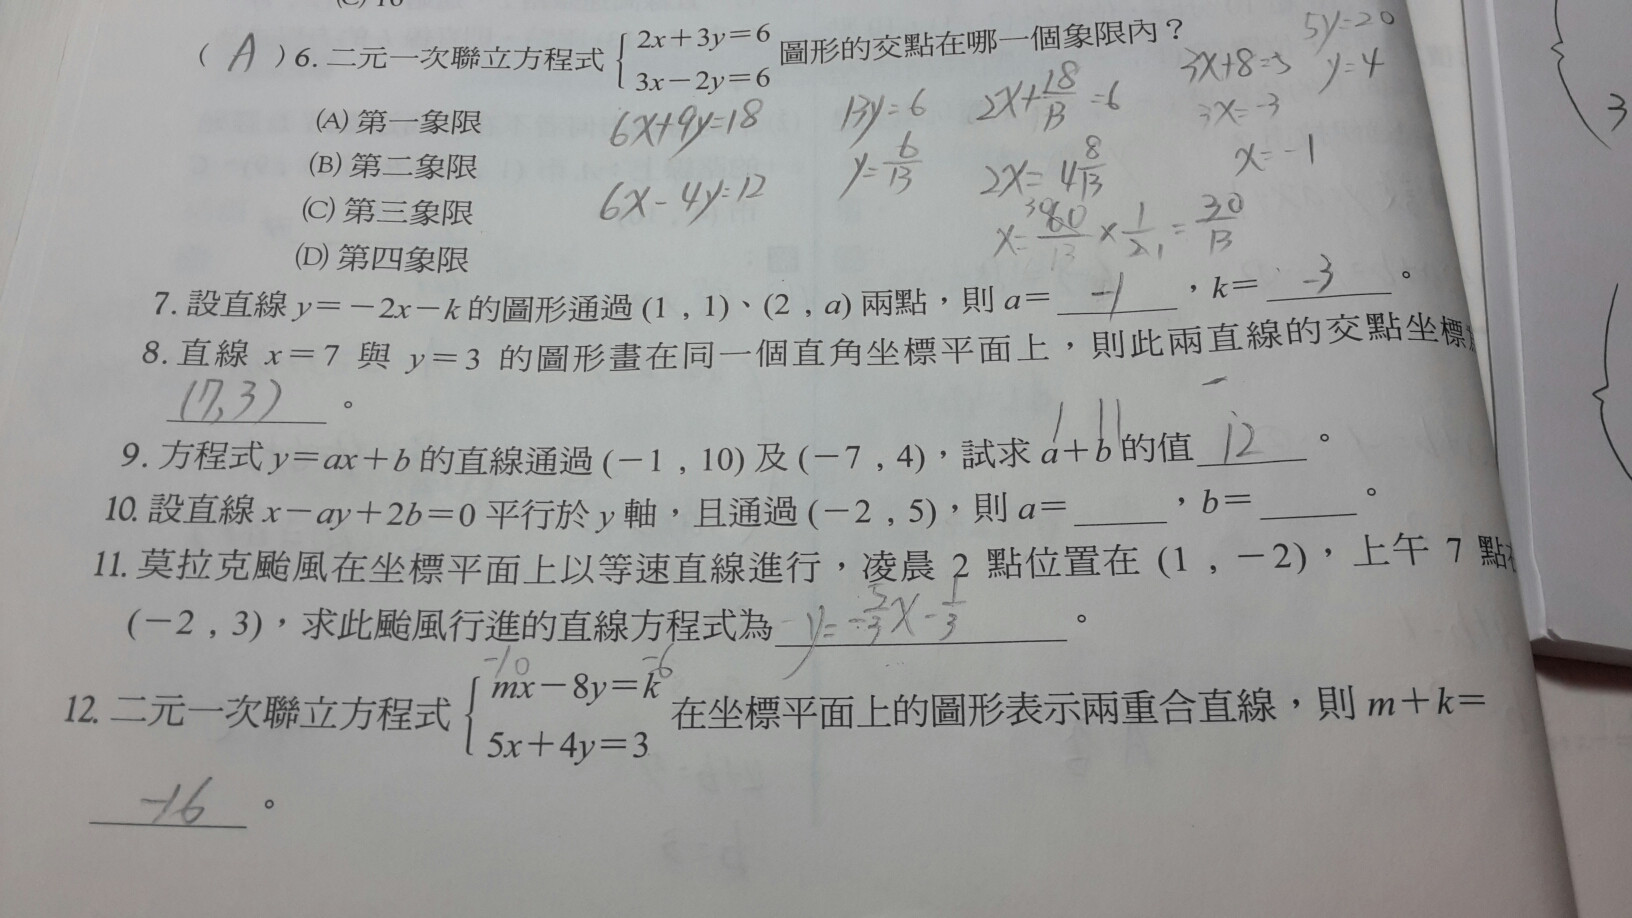 (A)6. 二元一次聯立方程式 { 2x+3y=6 圖形的交點在哪一個象限內？
3x-2y=6
5y=20
y=4
3x+8=5
3x=-3
x=-1
(A) 第一象限
(B) 第二象限
(C) 第三象限
(D) 第四象限
6x+9y=18
6x-4y=12
13y=6
y=6/13
2x+18/13=6
2x=4 8/13
x=60/13×1/2=30/13
7. 設直線 y=-2x-k 的圖形通過 (1 , 1)、(2 , a) 兩點，則 a= -1 ，k= -3 。
8. 直線 x=7 與 y=3 的圖形畫在同一個直角坐標平面上，則此兩直線的交點坐標
(7,3) 。
1 11
9. 方程式 y=ax+b 的直線通過 (-1 , 10) 及 (-7 , 4)，試求 a+b 的值 12 。
10. 設直線 x-ay+2b=0 平行於 y 軸，且通過 (-2 , 5)，則 a=_____，b=_____。
11. 莫拉克颱風在坐標平面上以等速直線進行，凌晨 2 點位置在 (1 , -2)，上午 7 點
(-2 , 3)，求此颱風行進的直線方程式為 y=-5/3x-1/3 。
-10 -6
12. 二元一次聯立方程式 { mx-8y=k 在坐標平面上的圖形表示兩重合直線，則 m+k=
5x+4y=3
-16 。
3